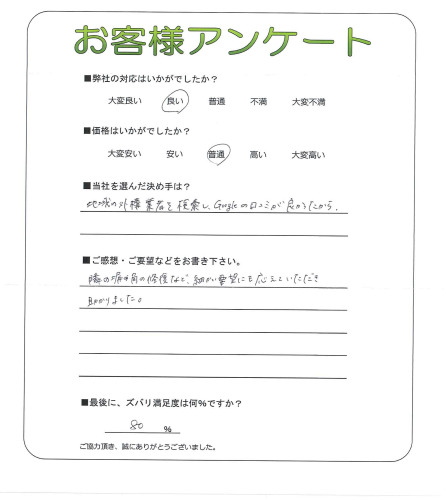 お客様アンケート
■弊社の対応はいかがでしたか？
大変良い 良い 普通 不満 大変不満
■価格はいかがでしたか？
大変安い 安い 普通 高い 大変高い
■当社を選んだ決め手は？
地域の外構業者を検索し、Googleの口コミが良かったから。
■ご感想・ご要望などをお書き下さい。
隣の塀の修復など、細かい要望にも応えていただき
助かりました。
■最後に、ズバリ満足度は何％ですか？
80 ％
ご協力頂き、誠にありがとうございました。